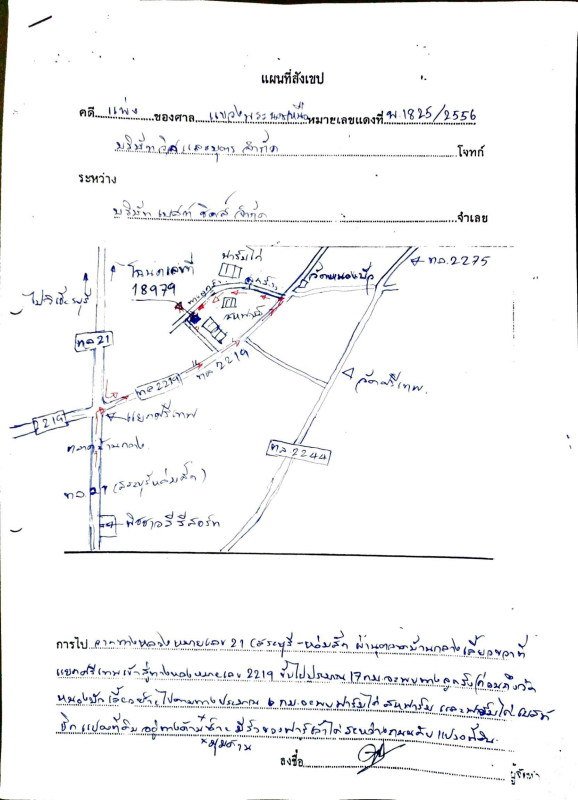 แผนที่สังเขป
คดี แพ่ง ของศาล แขวงพระนครเหนือ หมายเลขแดงที่ พ.1825/2556
บริษัท และบุตร จำกัด โจทก์
ระหว่าง
บริษัท เบสท์ ชิคส์ จำกัด จำเลย
ฟาร์มไก่
ทล.2275
โฉนดเลขที่
18979
วัดหนองบัว
ทางลูกรัง
สหฟาร์ม
ทล 21
ทล 2219
ทล 2219
วัดศรีเทพ
2219
แยกศรีเทพ
ตลาดบ้านกลาง
ทล 2244
ทล. 21 (สระบุรี หล่มสัก)
รีสอร์ท
การไป จากทางหลวงหมายเลข 21 (สระบุรี-หล่มสัก) ผ่านตลาดบ้านกลางเลี้ยวขวาที่
แยกศรีเทพเข้าสู่ทางหลวงหมายเลข 2219 ขับไปประมาณ 17 กม. จะพบทางลูกรัง (ก่อนถึงวัด
หนองบัว เลี้ยวซ้าย ไปตามทางประมาณ 6 กม. จะพบฟาร์มไก่ สหฟาร์ม และฟาร์มไก่ เบสท์
ชิค แปลงที่ดิน อยู่ทางด้านซ้าย มีรั้วของฟาร์ม
ลงชื่อ